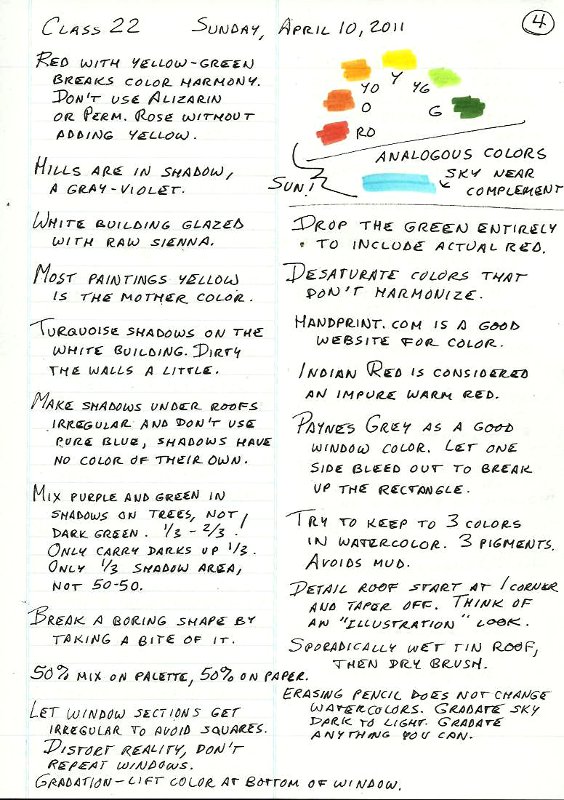 CLASS 22 SUNDAY, APRIL 10, 2011
4
RED WITH YELLOW-GREEN
BREAKS COLOR HARMONY.
DON'T USE ALIZARIN
OR PERM. ROSE WITHOUT
ADDING YELLOW.
HILLS ARE IN SHADOW,
A GRAY-VIOLET.
WHITE BUILDING GLAZED
WITH RAW SIENNA.
MOST PAINTINGS YELLOW
IS THE MOTHER COLOR.
TURQUOISE SHADOWS ON THE
WHITE BUILDING. DIRTY
THE WALLS A LITTLE.
MAKE SHADOWS UNDER ROOFS
IRREGULAR AND DON'T USE
PURE BLUE, SHADOWS HAVE
NO COLOR OF THEIR OWN.
MIX PURPLE AND GREEN IN
SHADOWS ON TREES, NOT
DARK GREEN. 1/3 - 2/3!
ONLY CARRY DARKS UP 1/3.
ONLY 1/3 SHADOW AREA,
NOT 50-50.
BREAK A BORING SHAPE BY
TAKING A BITE OF IT.
50% MIX ON PALETTE, 50% ON PAPER.
LET WINDOW SECTIONS GET
IRREGULAR TO AVOID SQUARES.
DISTORT REALITY, DON'T
REPEAT WINDOWS.
GRADATION-LIFT COLOR AT BOTTOM OF WINDOW.
Y
YO YG
O G
RO
ANALOGOUS COLORS
SUN! SKY NEAR
COMPLEMENT
DROP THE GREEN ENTIRELY
TO INCLUDE ACTUAL RED.
DESATURATE COLORS THAT
DON'T HARMONIZE.
HANDPRINT.COM IS A GOOD
WEBSITE FOR COLOR.
INDIAN RED IS CONSIDERED
AN IMPURE WARM RED.
PAYNES GREY AS A GOOD
WINDOW COLOR. LET ONE
SIDE BLEED OUT TO BREAK
UP THE RECTANGLE.
TRY TO KEEP TO 3 COLORS
IN WATERCOLOR. 3 PIGMENTS.
AVOIDS MUD.
DETAIL ROOF START AT 1 CORNER
AND TAPER OFF. THINK OF
AN "ILLUSTRATION" LOOK.
SPORADICALLY WET TIN ROOF,
THEN DRY BRUSH.
ERASING PENCIL DOES NOT CHANGE
WATERCOLORS. GRADATE SKY
DARK TO LIGHT. GRADATE
ANYTHING YOU CAN.